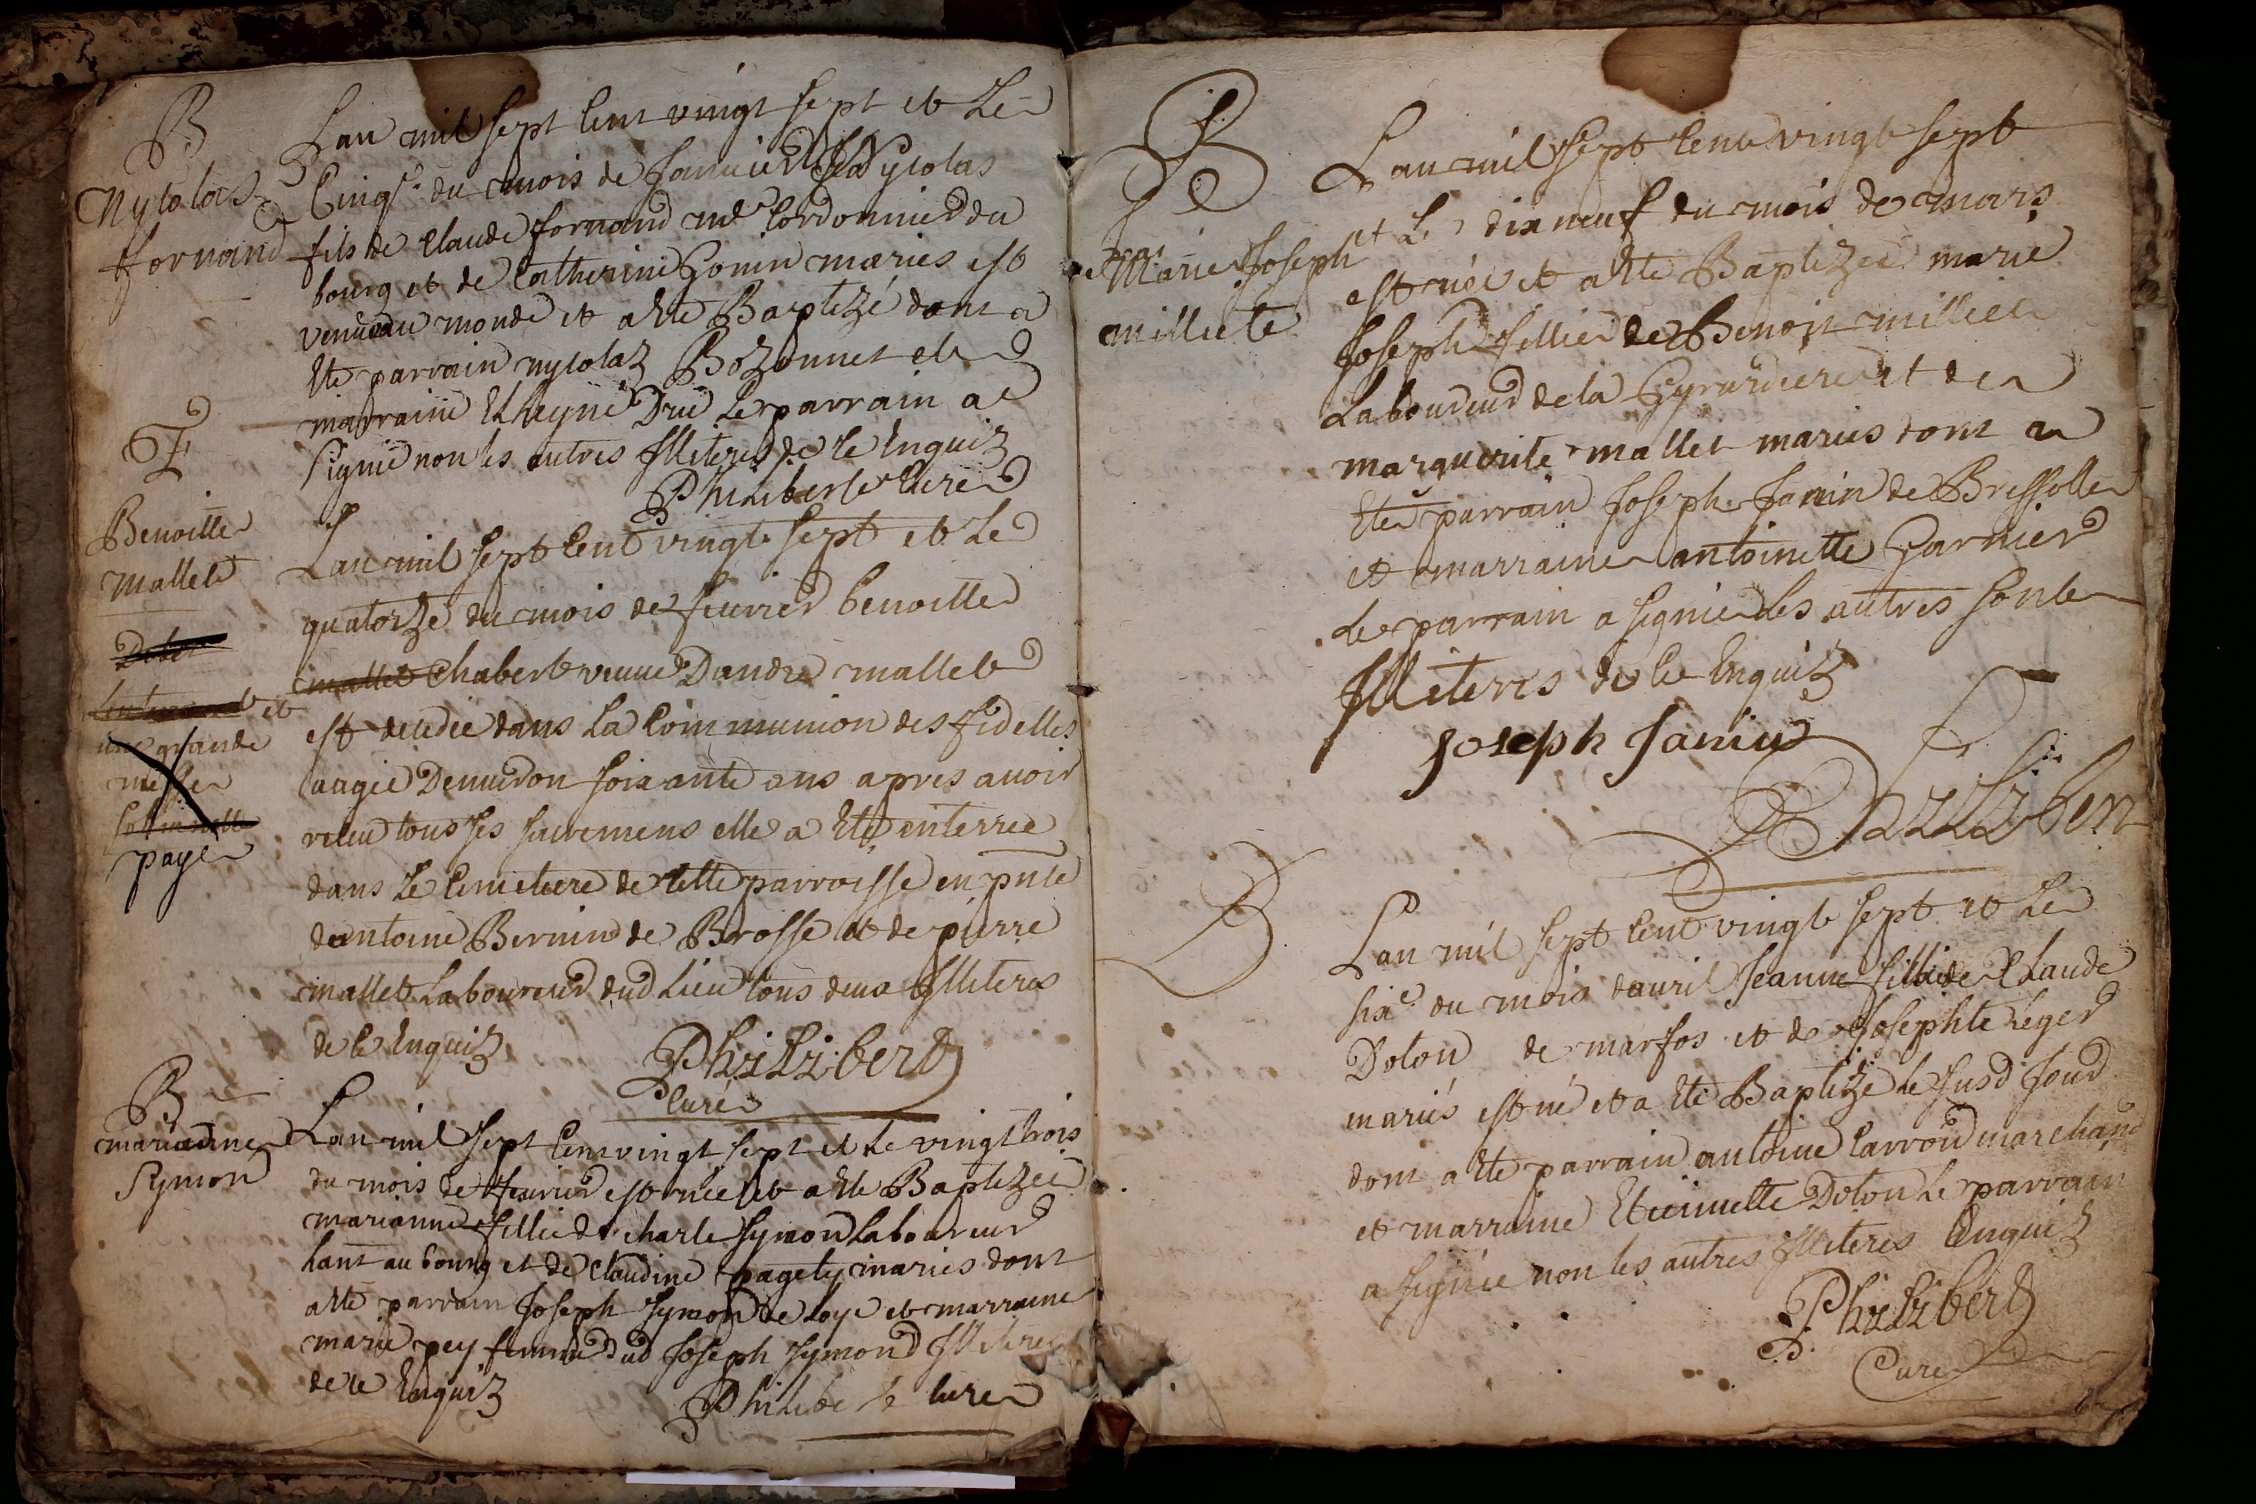 B
Nycolas
fornand
Lan mil sept Cent vingt sept et Le
Cinqe. du mois de Januier Nycolas
fils de Claude fornand me Cordonnier du
bourg et de Catherine Gonin mariés est
venu au monde et a Eté Baptizé dont a
Eté parrain nycolaz Bozonnet et
marraine Etheyne Drù Le parrain a
signié non les autres Illiteres de Ce Enquiz
Philibert Curé
E
Benoitte
Mallet
et
une grande
messe
payé
Lan mil sept Cent vingt sept et Le
quatorze du mois de feurier benoitte
mallet Chabert veuue Dandre mallet
est decedée dans La Communion des fidelles
aagée Denuiron soixante ans apres auoir
receu tous ses sacremens elle a Eté enterrée
dans Le Cemetiere de Cette parroisse en pnce
dantoine Bernin de Brosse et de pierre
mallet Laboureur dud Lieu tous deux Illiteres
de Ce Enquiz
Philibert
Curé
B
marianne
Symon
Lan mil sept Cent vingt sept et Le vingt trois
du mois de feurier est née et a Eté Baptizée
marianne fillie de charle Symon Laboureur
hant au bourg et de Claudine pagety mariés dont
a Eté parrain Joseph Symon de Loye et marraine
marie pey femme dud Joseph Symond Illiteres
de Ce Enquiz
Philibert Curé
B
Marie Joseph
milliete
Lan mil sept Cent vingt sept
et Le dixneuf du mois de mars
est née et a Eté Baptizée marie
Joseph fillie de Benoit milliet
Laboureur de la Gyrardiere et de
marguerite mallet mariés dont a
Eté parrain Joseph Janin de Bressolle
et marraine antoinette Garnier
Le parrain a signié Les autres sont
Illiteres de Ce Enquiz
Joseph Janin
Philibert
B
Lan mil sept Cent vingt sept et Le
sixe. du mois dauril Jeanne fillie de Claude
Doton de marfos et de Josephte Leger
mariés est né et a Eté Baptizé le susd Jour
dont a Eté parrain antoine Carron marchand
et marraine Etiennette Doton Le parrain
a signié non les autres Illiteres Enquiz
Philibert
Curé